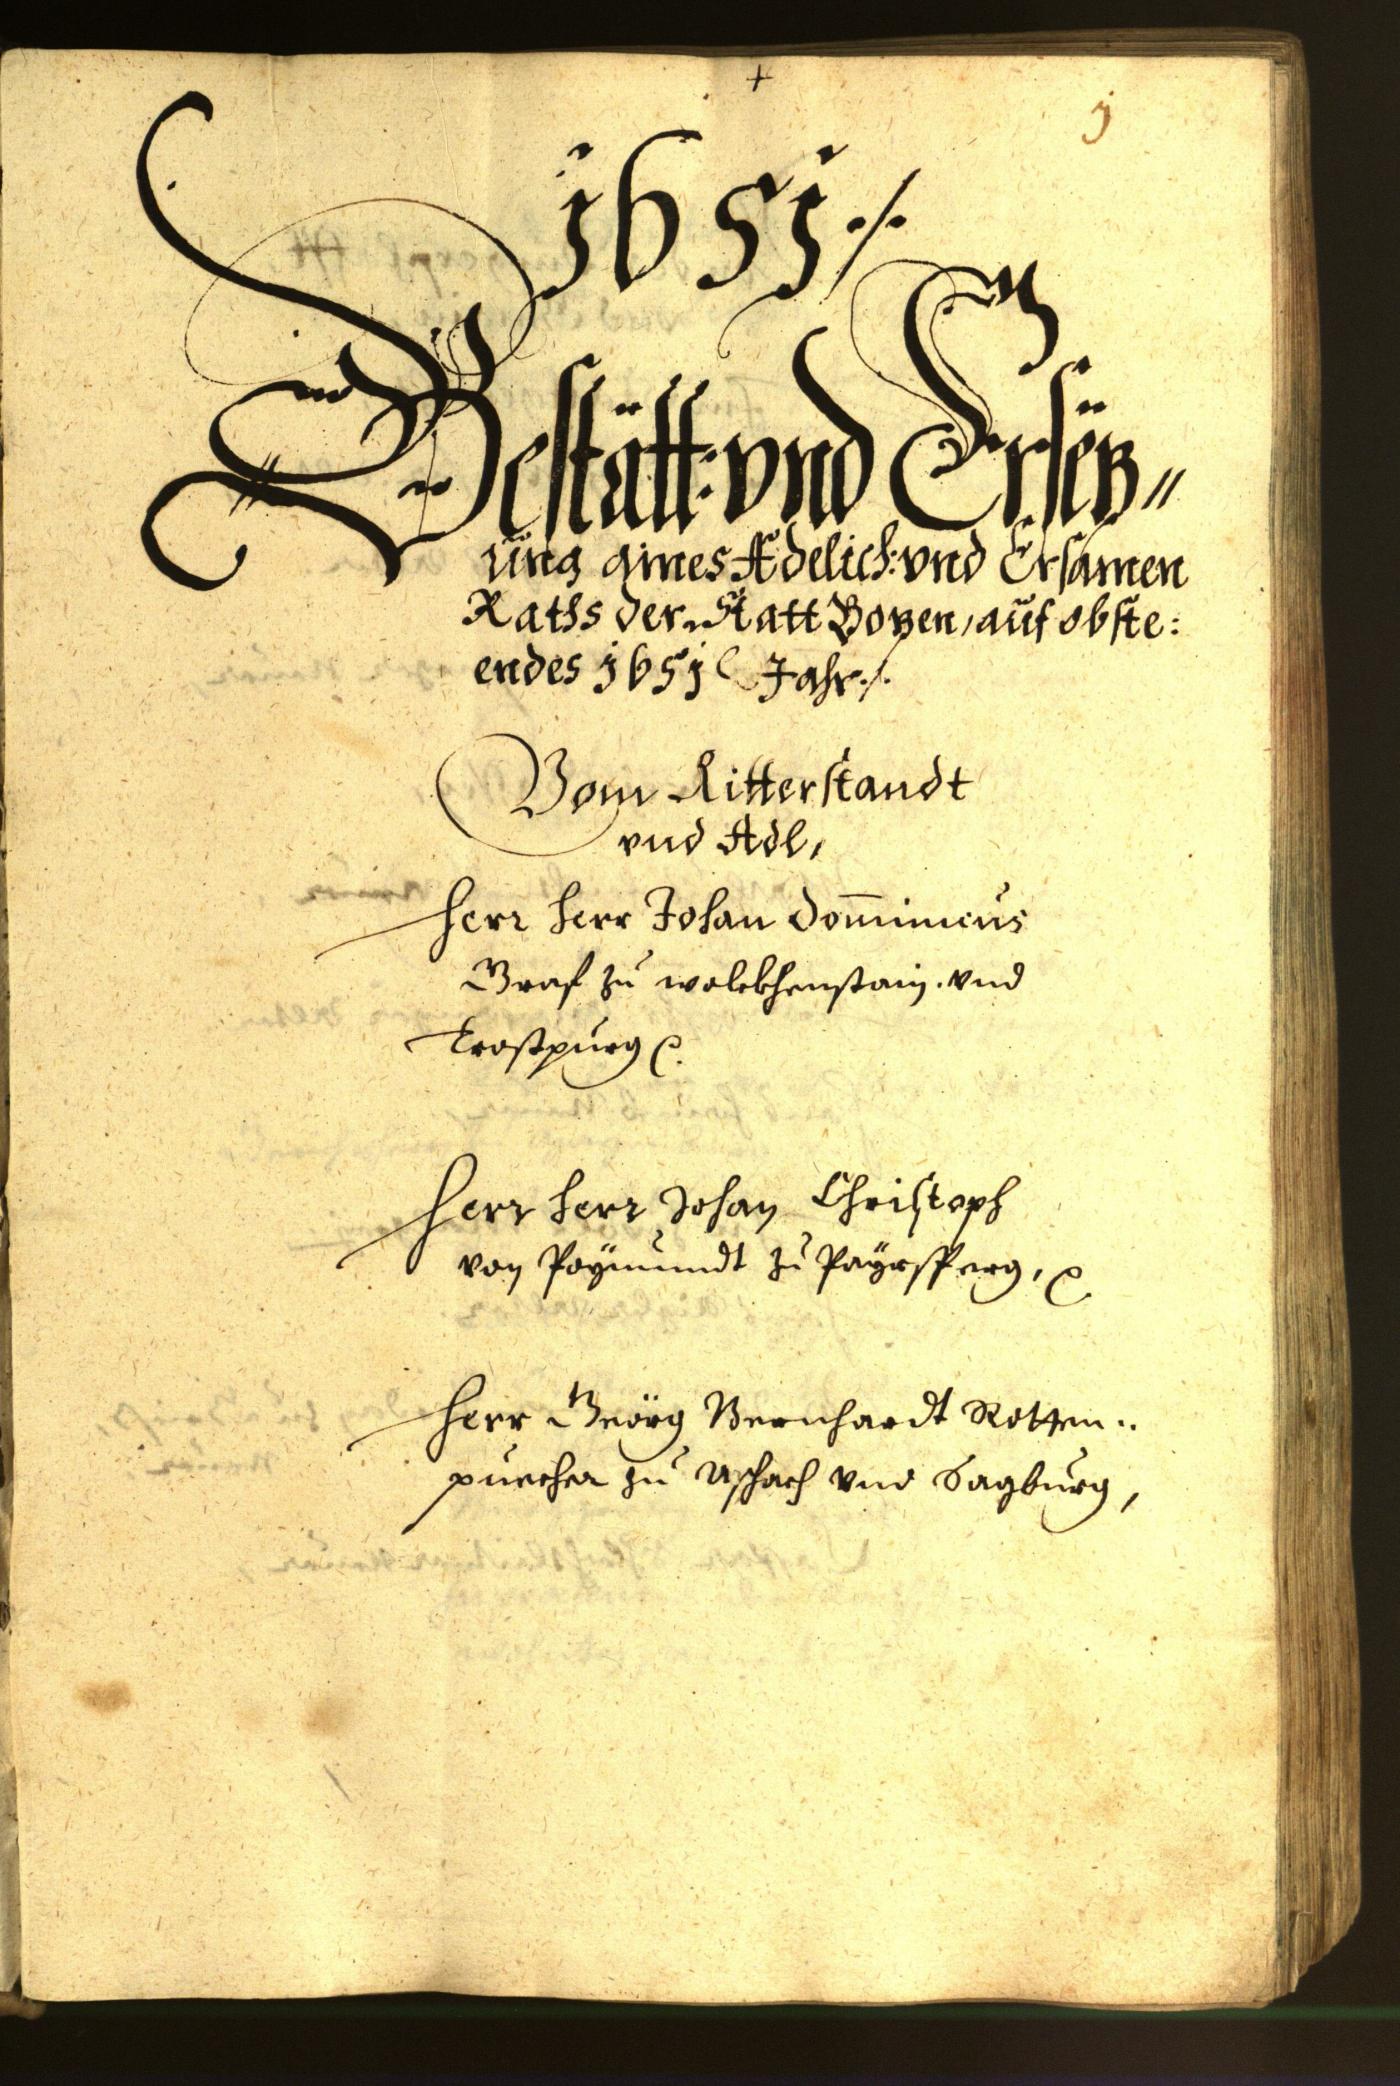 +
1
1651 ./.
Bestätt: vnd Ersetz//
ung aines Adelich: vnd Ersamen
Raths der Statt Bozen, auf obste:
endes 1651 Jahr ./.
Vom Ritterstandt
vnd Adl,
Herr Herr Johan Dom̄inicus
Graf zu Wolckhenstain. vnd
Trostpurg &.
Herr Herr Johan Christoph
von Paÿmundt zu Paÿrsperg, &.
Herr Geörg Bernhardt Rotten:
puecher zu Aschach vnd Sagburg,